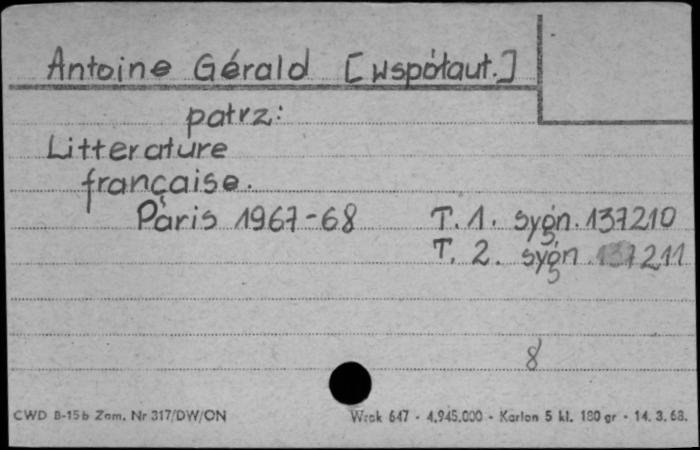 Antoine Gérald [współaut.]
patrz:
Litterature
française.
Paris 1967-68 T. 1. sygn. 137210
T. 2. sygn. 137211
8
CWD B-15b Zam. Nr 317/DW/ON Wzak 647 - 4.945.000 - Karton 5 kl. 180 gr - 14. 3. 68.